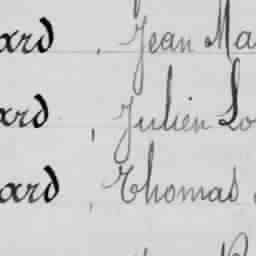 ard, Jean Ma
ard, Julien Lo
ard, Thomas